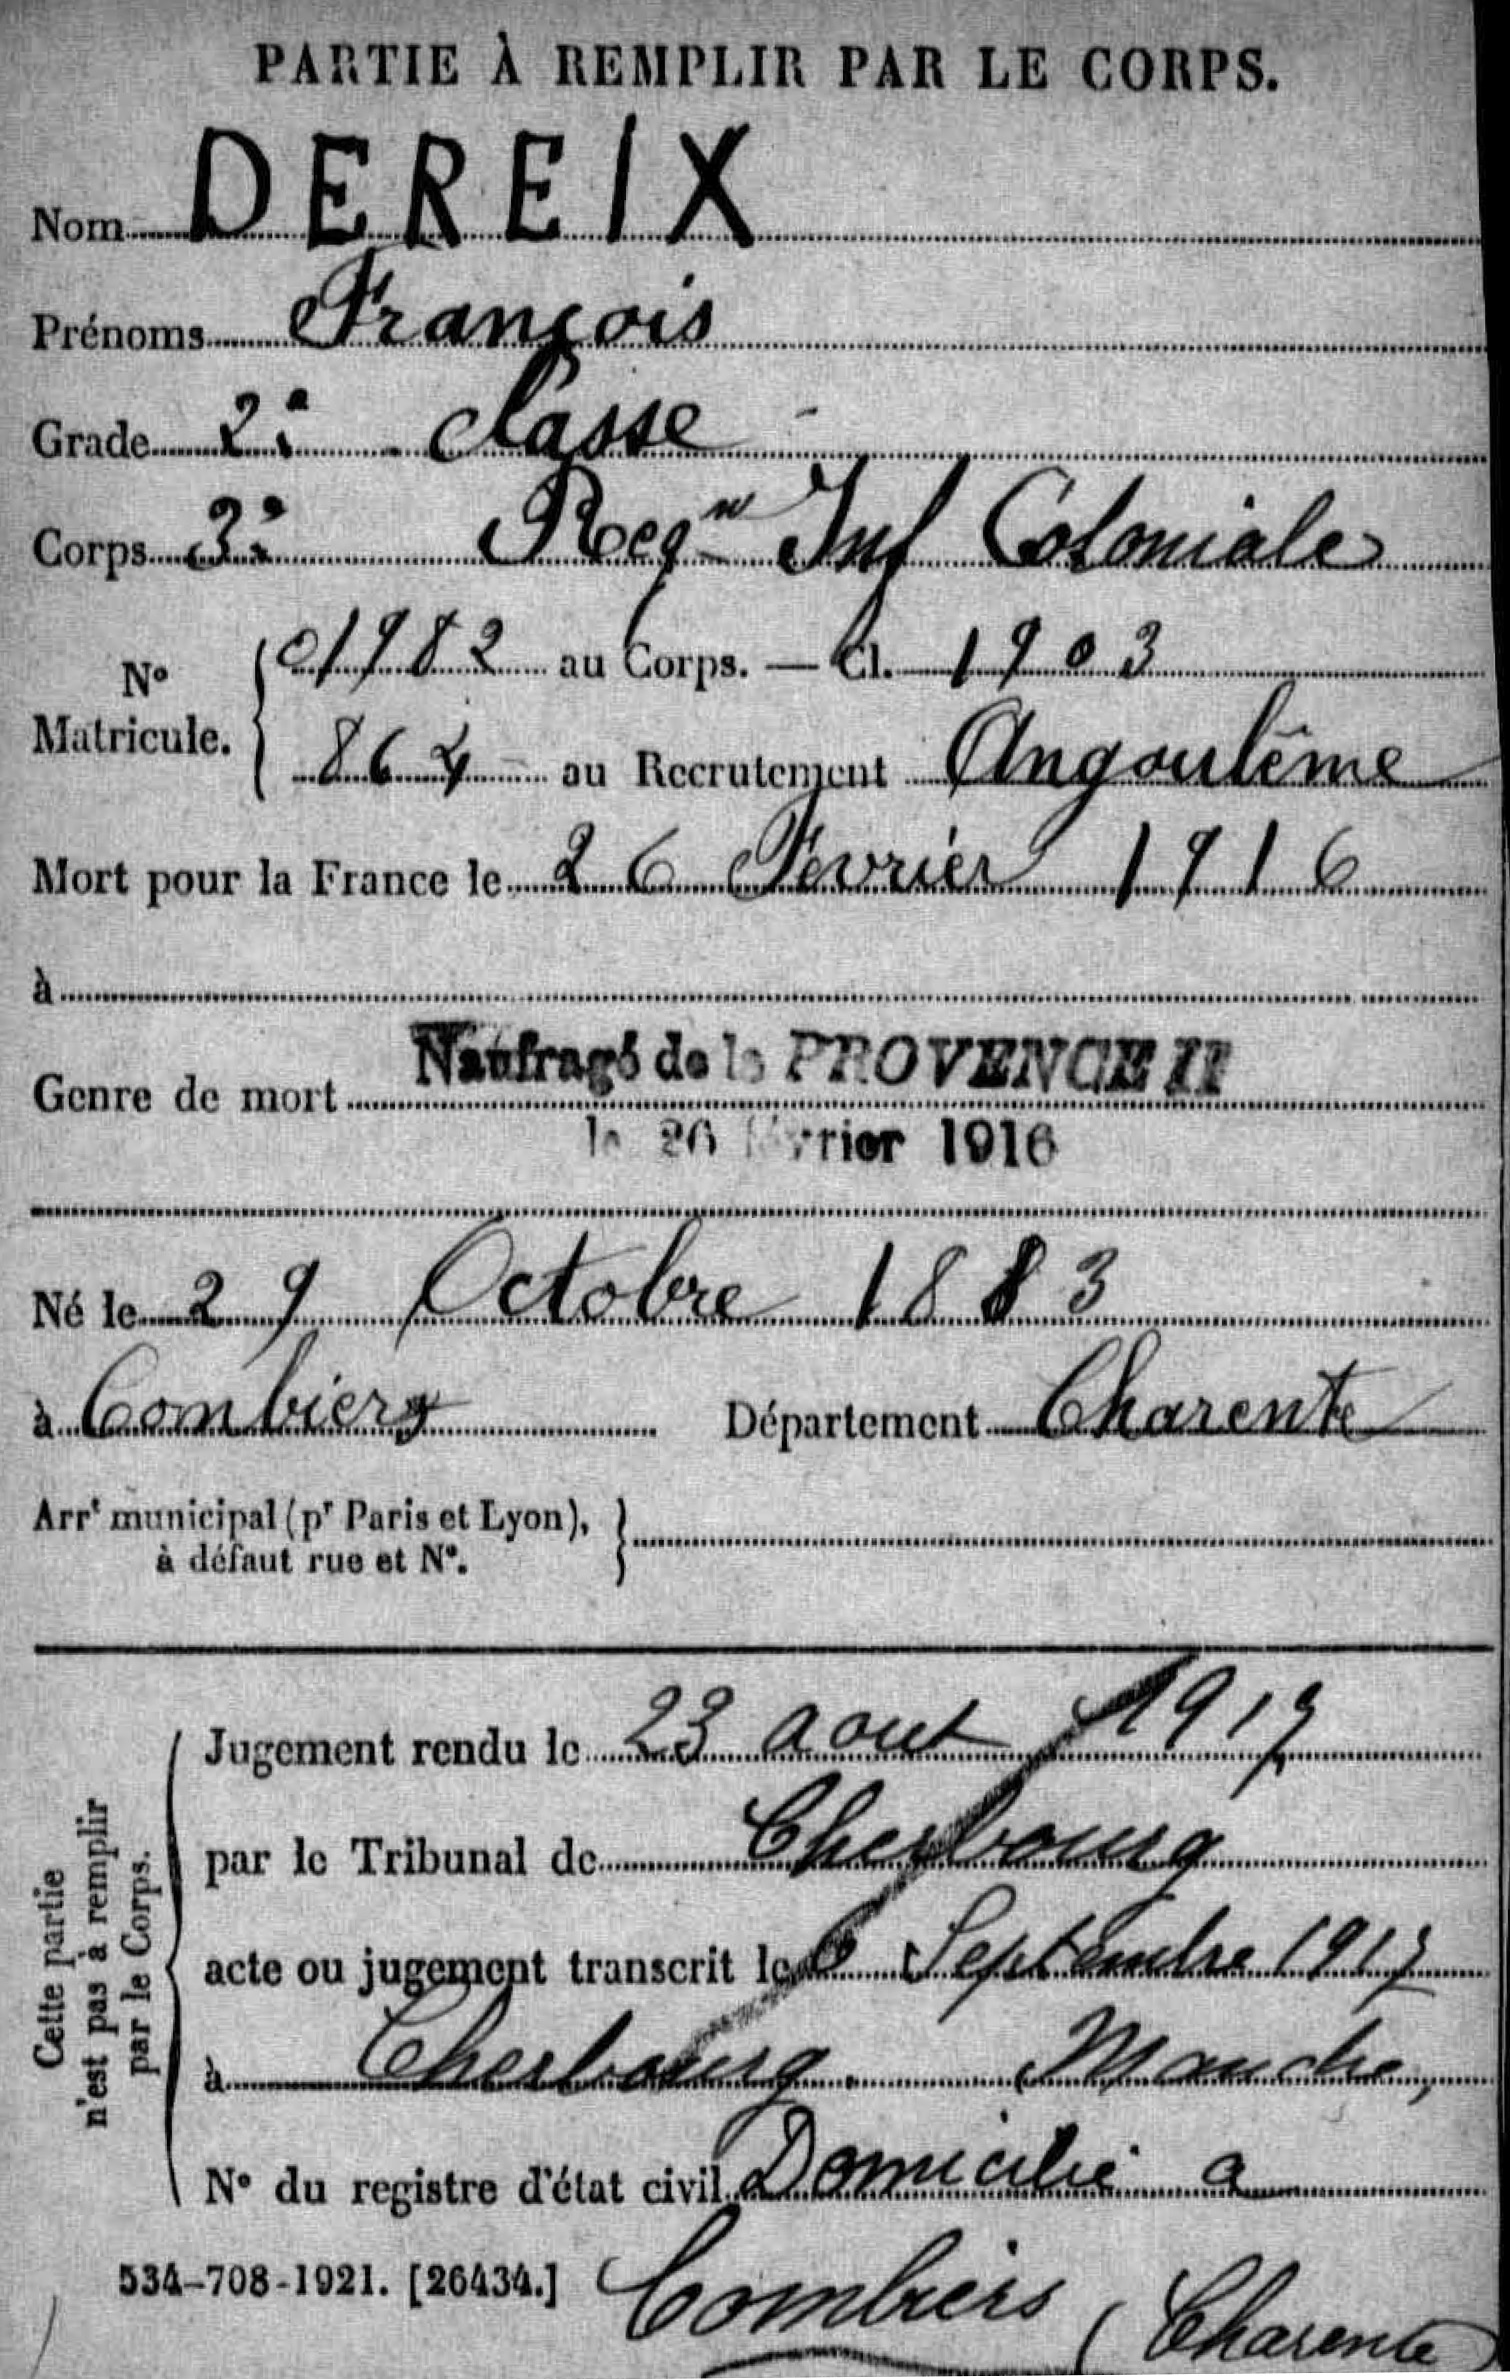 PARTIE À REMPLIR PAR LE CORPS.
Nom DEREIX
Prénoms François
Grade 2e classe
Corps 3e Regt Inf Coloniale
No Matricule. 01982 au Corps. — Cl. 1903
864 au Recrutement Angoulême
Mort pour la France le 26 Fevrier 1916
à
Genre de mort Naufragé de la PROVENCE II
le 26 février 1916
Né le 29 Octobre 1883
à Combiers Département Charente
Arrt municipal (pr Paris et Lyon),
à défaut rue et No.
Cette partie
n'est pas à remplir
par le Corps.
Jugement rendu le 23 aout 1917
par le Tribunal de Cherbourg
acte ou jugement transcrit le Septembre 1917
à Cherbourg Manche,
No du registre d'état civil Domicilié a
534-708-1921. [26434.] Combiers (Charente)